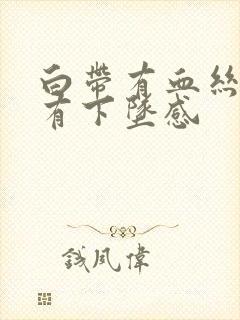 白帶有血絲
有下墜感
錢風偉